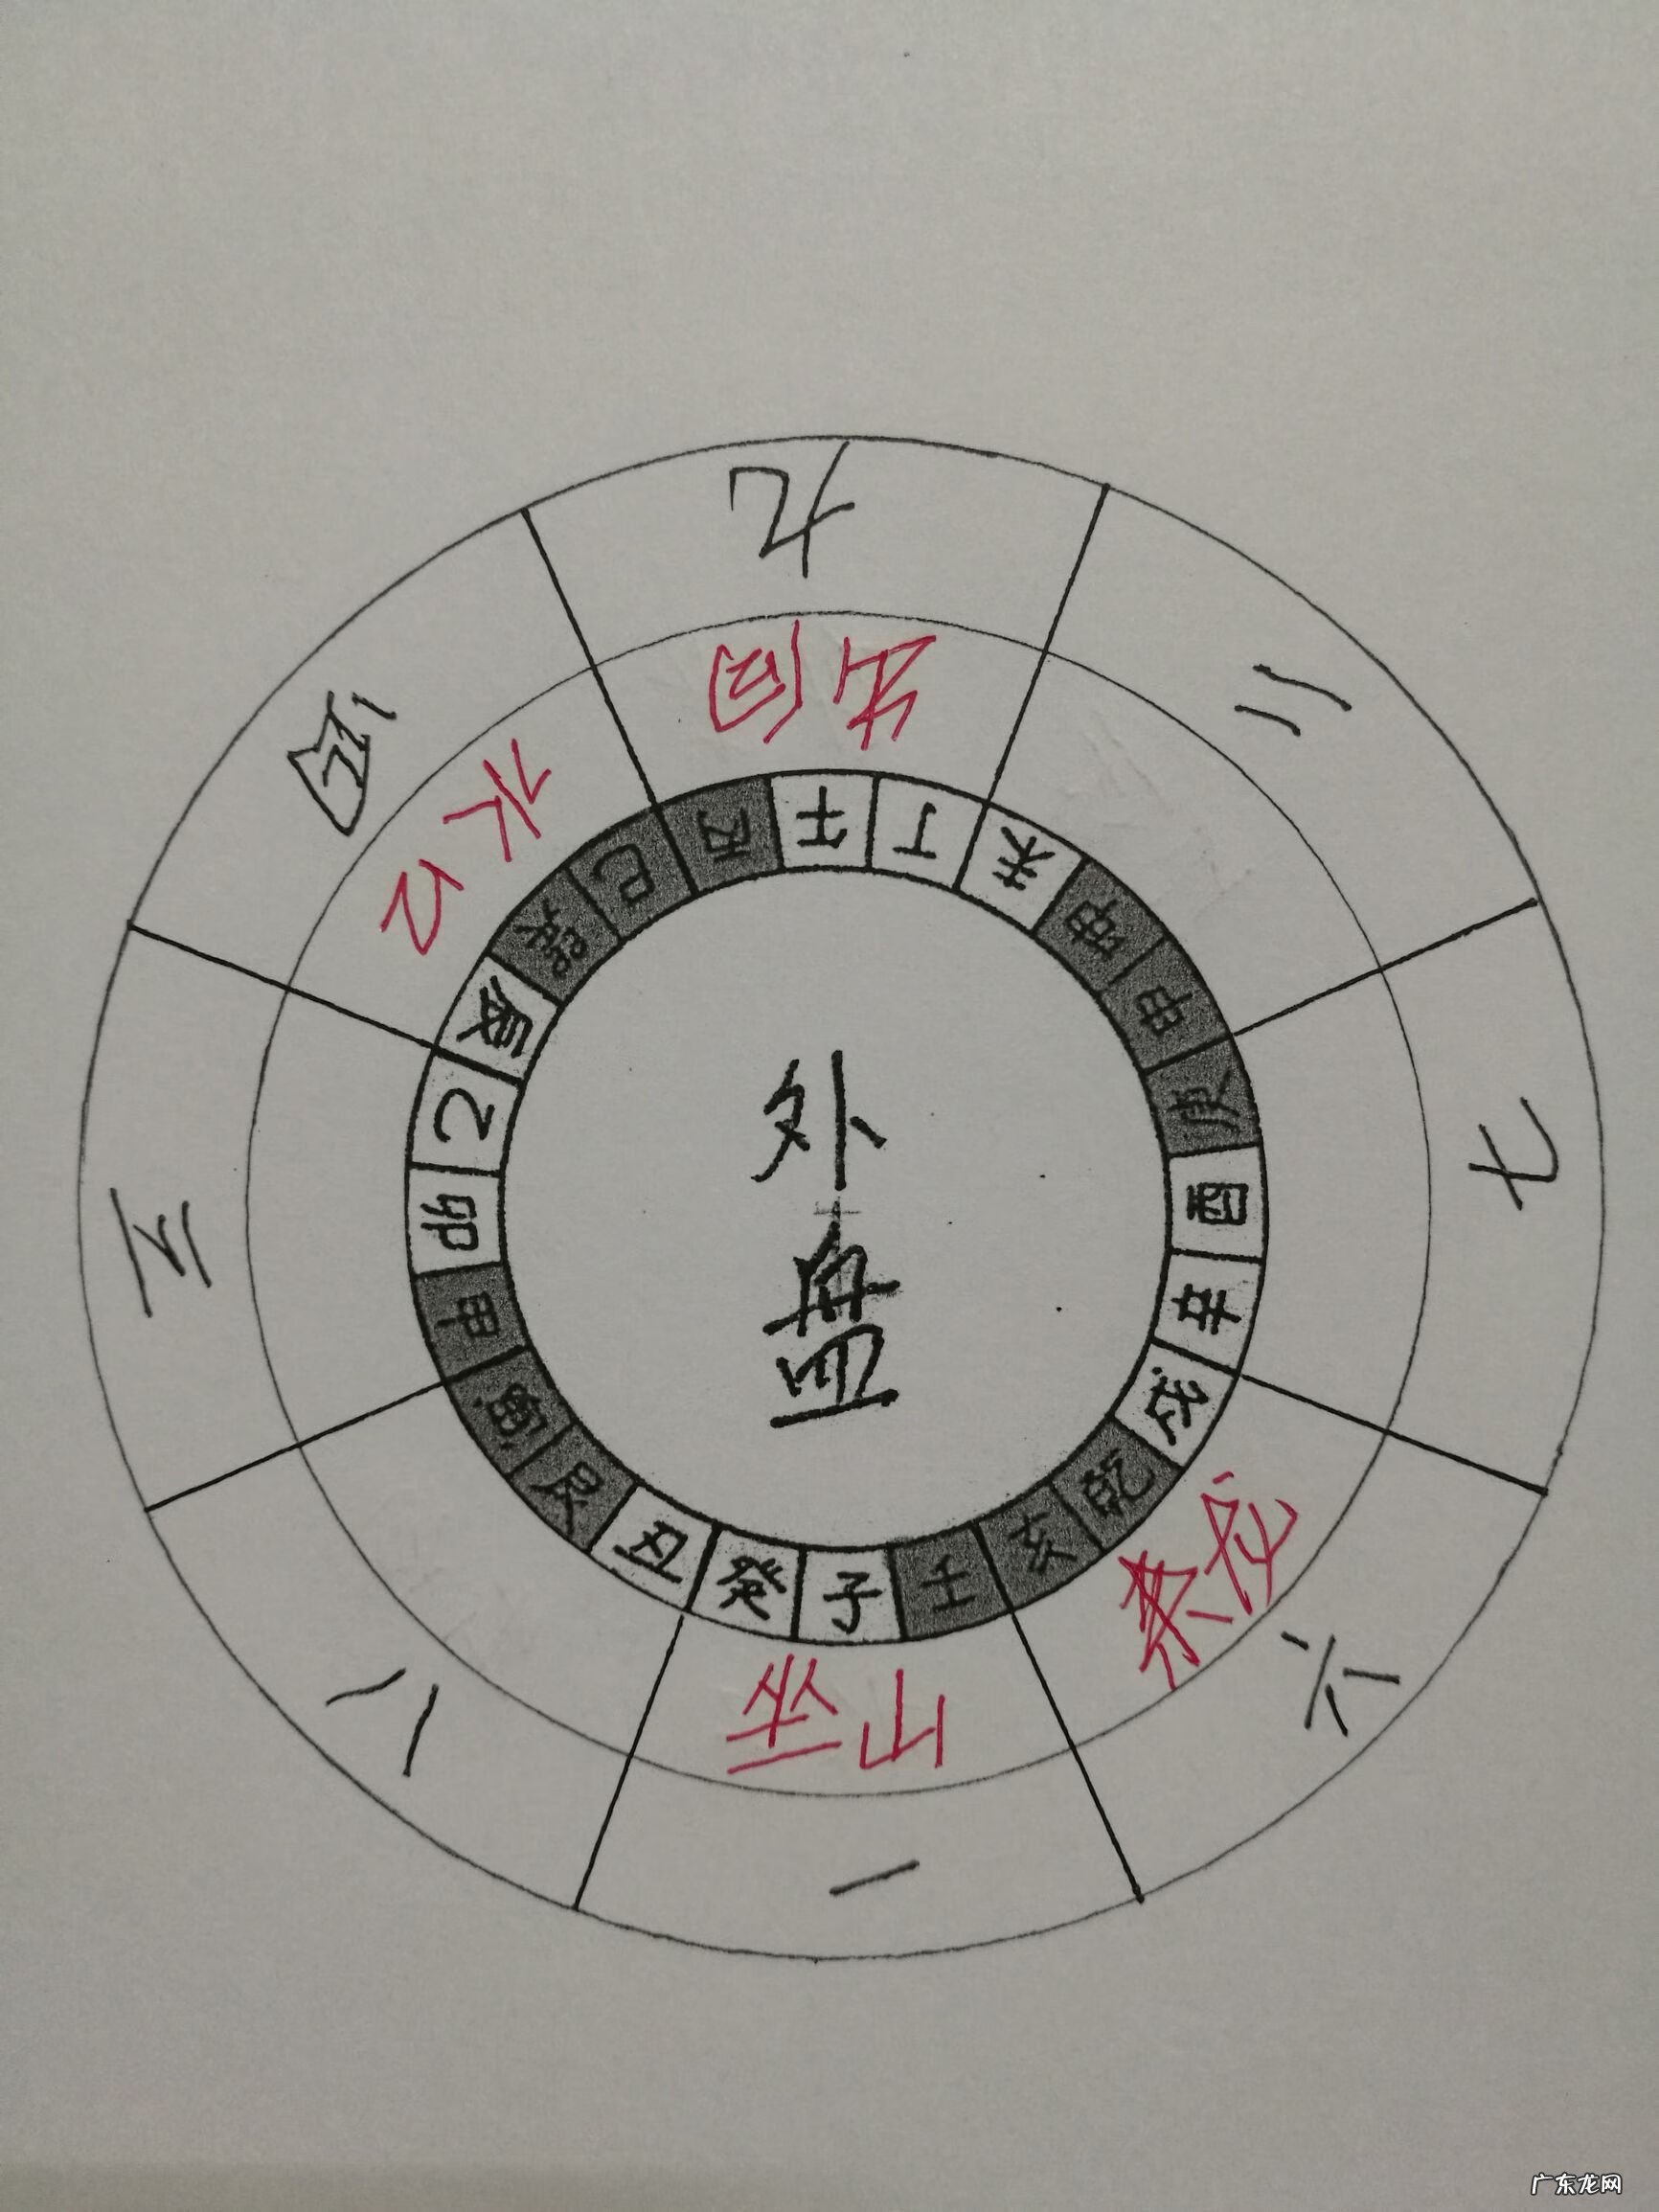 九
二
七
六
一
八
三
四
向
来龙
坐山
水口
午
丁
未
坤
申
庚
酉
辛
戌
乾
亥
壬
子
癸
丑
艮
寅
甲
卯
乙
辰
巽
巳
丙
外
盘
广东龙网